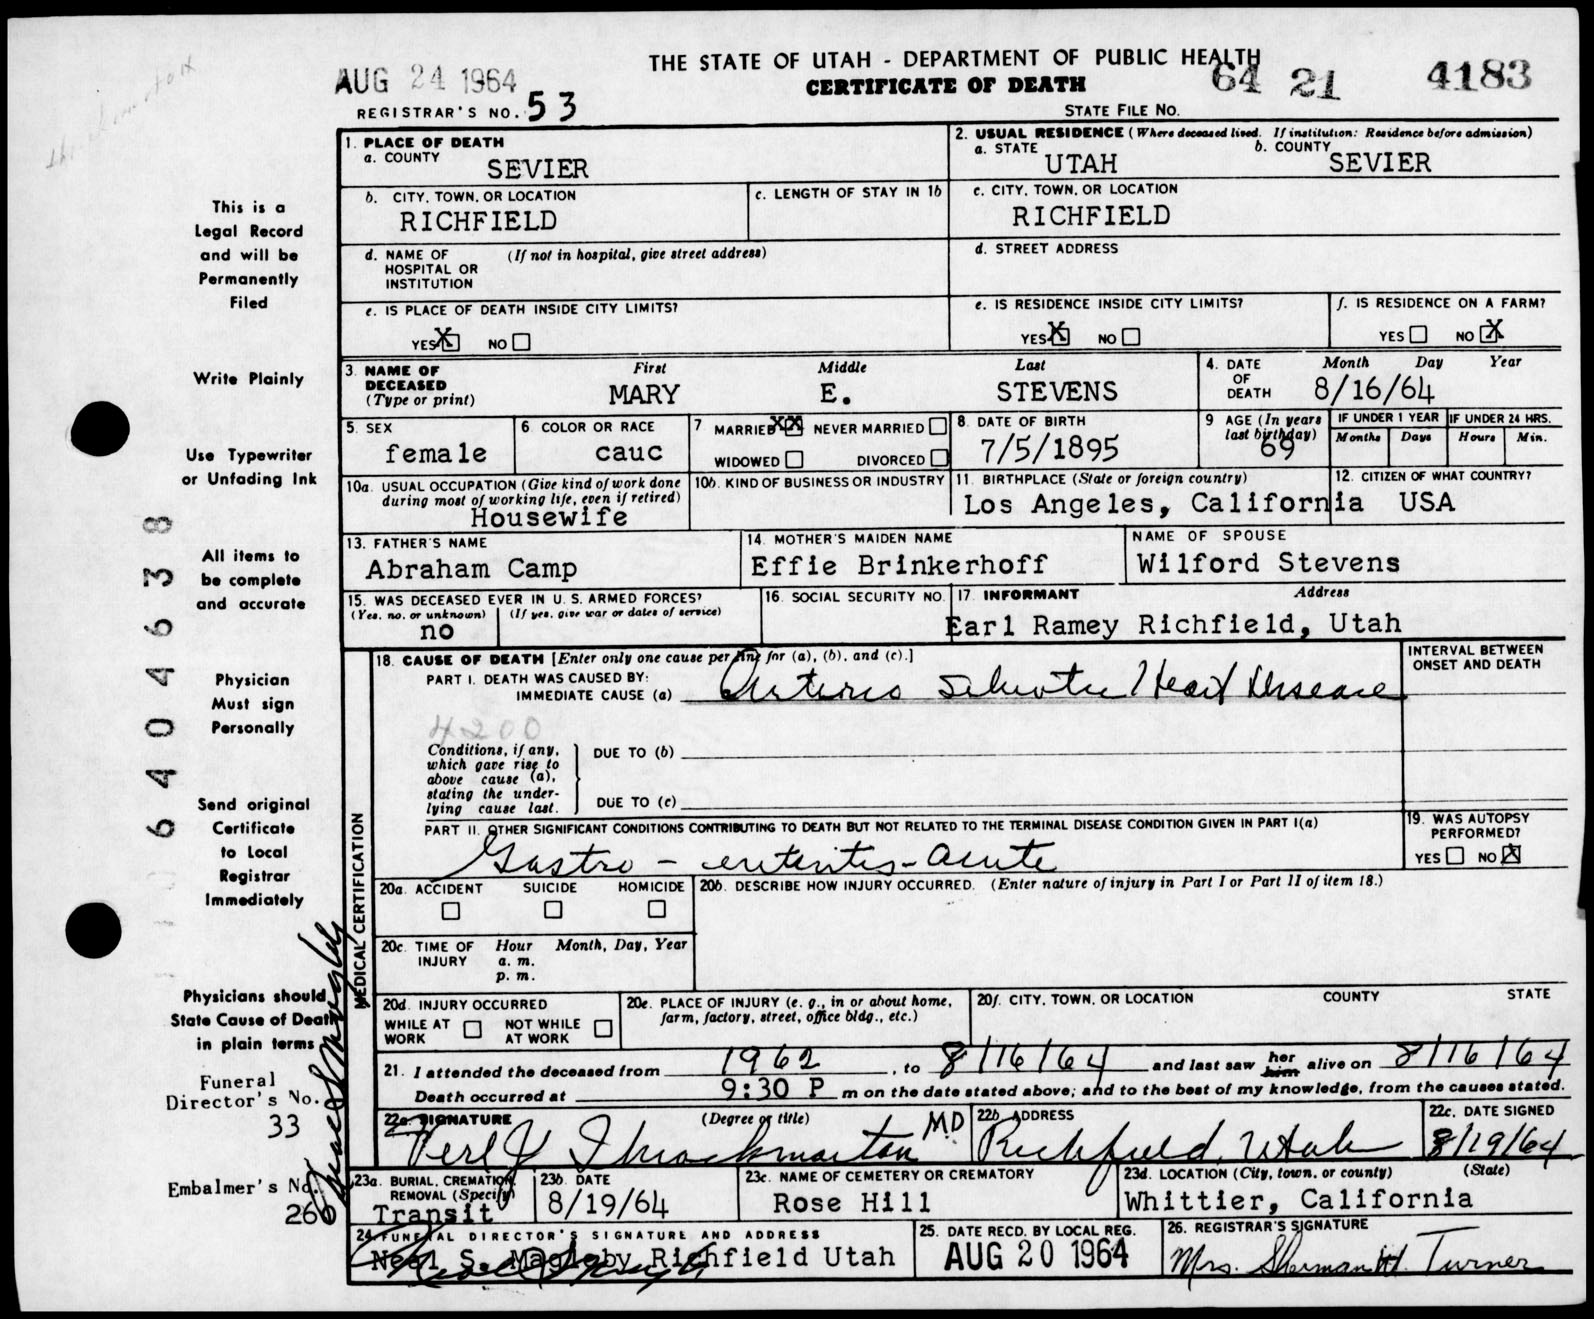 THE STATE OF UTAH - DEPARTMENT OF PUBLIC HEALTH
AUG 24 1964
CERTIFICATE OF DEATH
64 21 4183
REGISTRAR'S NO. 53
STATE FILE NO.
This is a
Legal Record
and will be
Permanently
Filed
Write Plainly
Use Typewriter
or Unfading Ink
All items to
be complete
and accurate
Physician
Must sign
Personally
Send original
Certificate
to Local
Registrar
Immediately
Physicians should
State Cause of Death
in plain terms
Funeral
Director's No.
33
Embalmer's No.
260
6404638
1. PLACE OF DEATH
a. COUNTY
SEVIER
2. USUAL RESIDENCE (Where deceased lived. If institution: Residence before admission)
a. STATE
UTAH
b. COUNTY
SEVIER
b. CITY, TOWN, OR LOCATION
RICHFIELD
c. LENGTH OF STAY IN 1b
c. CITY, TOWN, OR LOCATION
RICHFIELD
d. NAME OF (If not in hospital, give street address)
HOSPITAL OR
INSTITUTION
d. STREET ADDRESS
e. IS PLACE OF DEATH INSIDE CITY LIMITS?
YES X NO
e. IS RESIDENCE INSIDE CITY LIMITS?
YES X NO
f. IS RESIDENCE ON A FARM?
YES NO X
3. NAME OF
DECEASED
(Type or print)
First Middle Last
MARY E. STEVENS
4. DATE
OF
DEATH
Month Day Year
8/16/64
5. SEX
female
6 COLOR OR RACE
cauc
7 MARRIED XX NEVER MARRIED
WIDOWED DIVORCED
8. DATE OF BIRTH
7/5/1895
9 AGE (In years
last birthday)
69
IF UNDER 1 YEAR
Months Days
IF UNDER 24 HRS.
Hours Min.
10a. USUAL OCCUPATION (Give kind of work done
during most of working life, even if retired)
Housewife
10b. KIND OF BUSINESS OR INDUSTRY
11. BIRTHPLACE (State or foreign country)
Los Angeles, California
12. CITIZEN OF WHAT COUNTRY?
USA
13. FATHER'S NAME
Abraham Camp
14. MOTHER'S MAIDEN NAME
Effie Brinkerhoff
NAME OF SPOUSE
Wilford Stevens
15. WAS DECEASED EVER IN U. S. ARMED FORCES?
(Yes, no, or unknown) (If yes, give war or dates of service)
no
16. SOCIAL SECURITY NO.
17. INFORMANT Address
Earl Ramey Richfield, Utah
MEDICAL CERTIFICATION
18. CAUSE OF DEATH [Enter only one cause per line for (a), (b), and (c).]
PART I. DEATH WAS CAUSED BY:
IMMEDIATE CAUSE (a) Arterio Sclerotic Heart Disease
INTERVAL BETWEEN
ONSET AND DEATH
4200
Conditions, if any,
which gave rise to
above cause (a),
stating the under-
lying cause last.
DUE TO (b)
DUE TO (c)
PART II. OTHER SIGNIFICANT CONDITIONS CONTRIBUTING TO DEATH BUT NOT RELATED TO THE TERMINAL DISEASE CONDITION GIVEN IN PART I(a)
Gastro - enteritis - acute
19. WAS AUTOPSY
PERFORMED?
YES NO X
20a. ACCIDENT SUICIDE HOMICIDE
20b. DESCRIBE HOW INJURY OCCURRED. (Enter nature of injury in Part I or Part II of item 18.)
20c. TIME OF Hour Month, Day, Year
INJURY a. m.
p. m.
20d. INJURY OCCURRED
WHILE AT NOT WHILE
WORK AT WORK
20e. PLACE OF INJURY (e. g., in or about home,
farm, factory, street, office bldg., etc.)
20f. CITY, TOWN, OR LOCATION COUNTY STATE
21. I attended the deceased from 1962, to 8/16/64 and last saw her him alive on 8/16/64
Death occurred at 9:30 P m on the date stated above; and to the best of my knowledge, from the causes stated.
22a. SIGNATURE (Degree or title)
Verl J Throckmorton MD
22b. ADDRESS
Richfield, Utah
22c. DATE SIGNED
8/19/64
23a. BURIAL, CREMATION,
REMOVAL (Specify)
Transit
23b. DATE
8/19/64
23c. NAME OF CEMETERY OR CREMATORY
Rose Hill
23d. LOCATION (City, town, or county) (State)
Whittier, California
24 FUNERAL DIRECTOR'S SIGNATURE AND ADDRESS
Neal S. Magleby Richfield Utah
25. DATE RECD. BY LOCAL REG.
AUG 20 1964
26. REGISTRAR'S SIGNATURE
Mrs. Sherman H. Turner